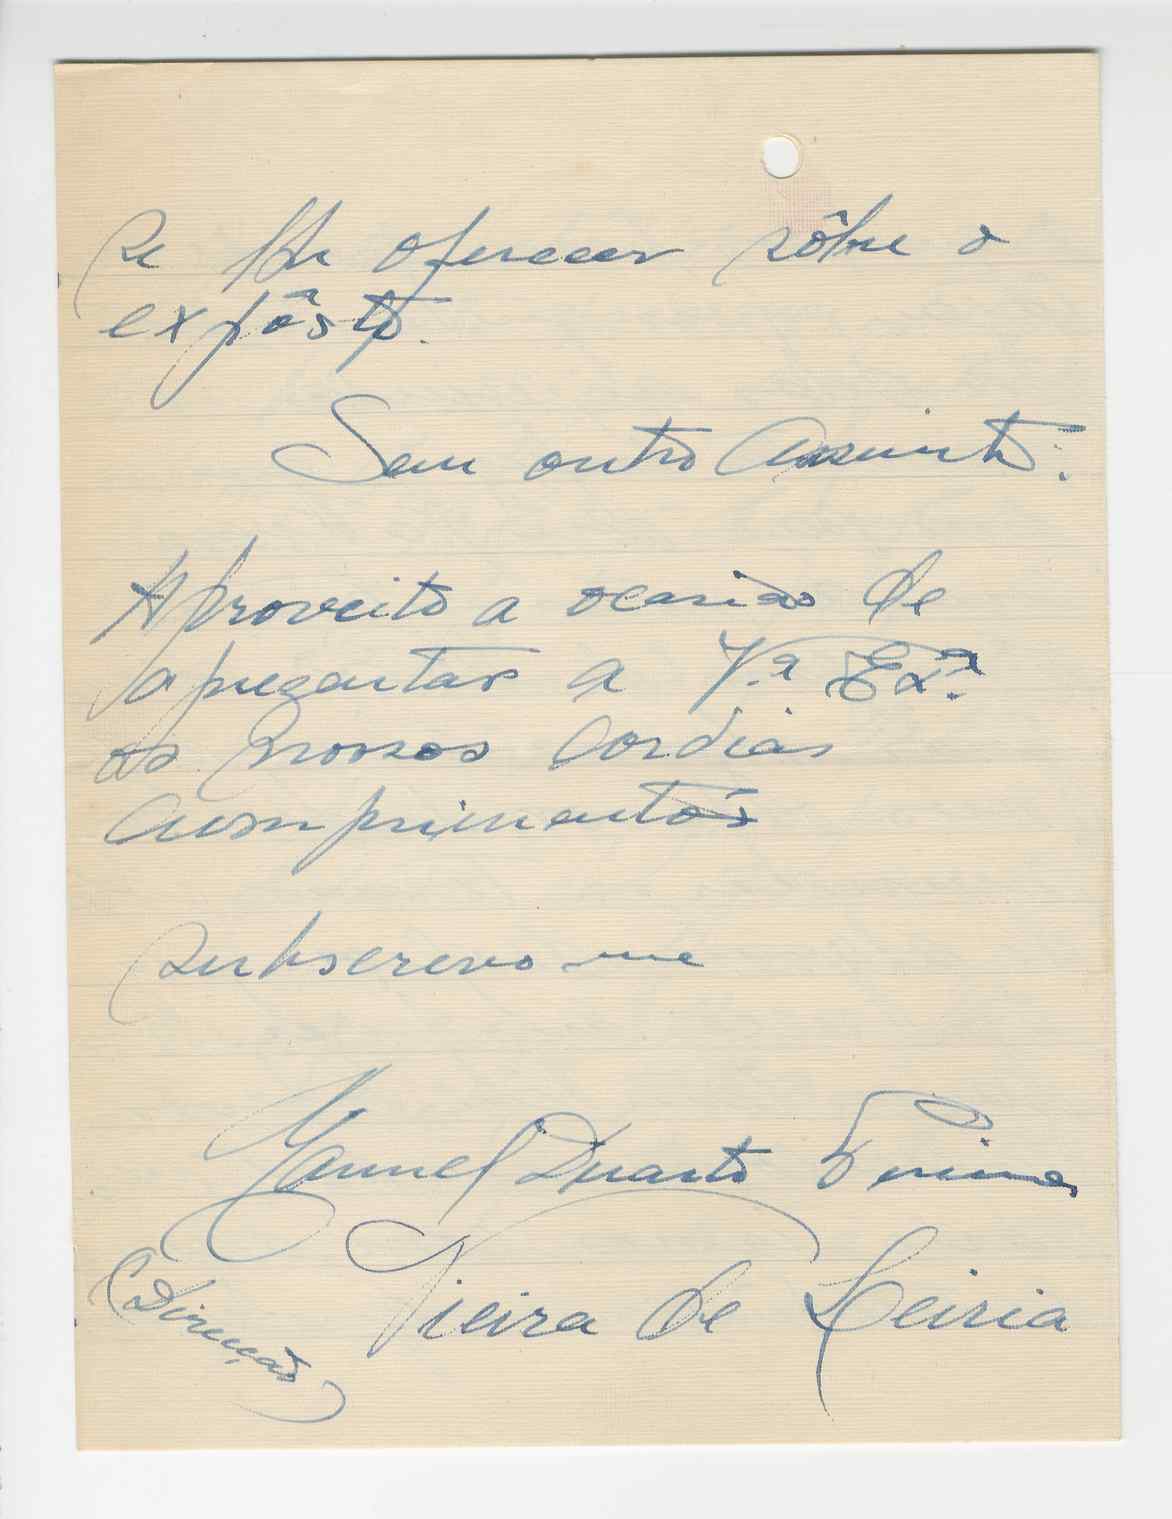 se lhe oferecer sôbre o
expôsto.
Sem outro Assunto:
Aproveito a ocasião de
apresentar a V.ª Exª.
os nossos cordiais
cumprimentos
subscrevo-me
Manuel Duarte
Vieira de Leiria
(Direcção)